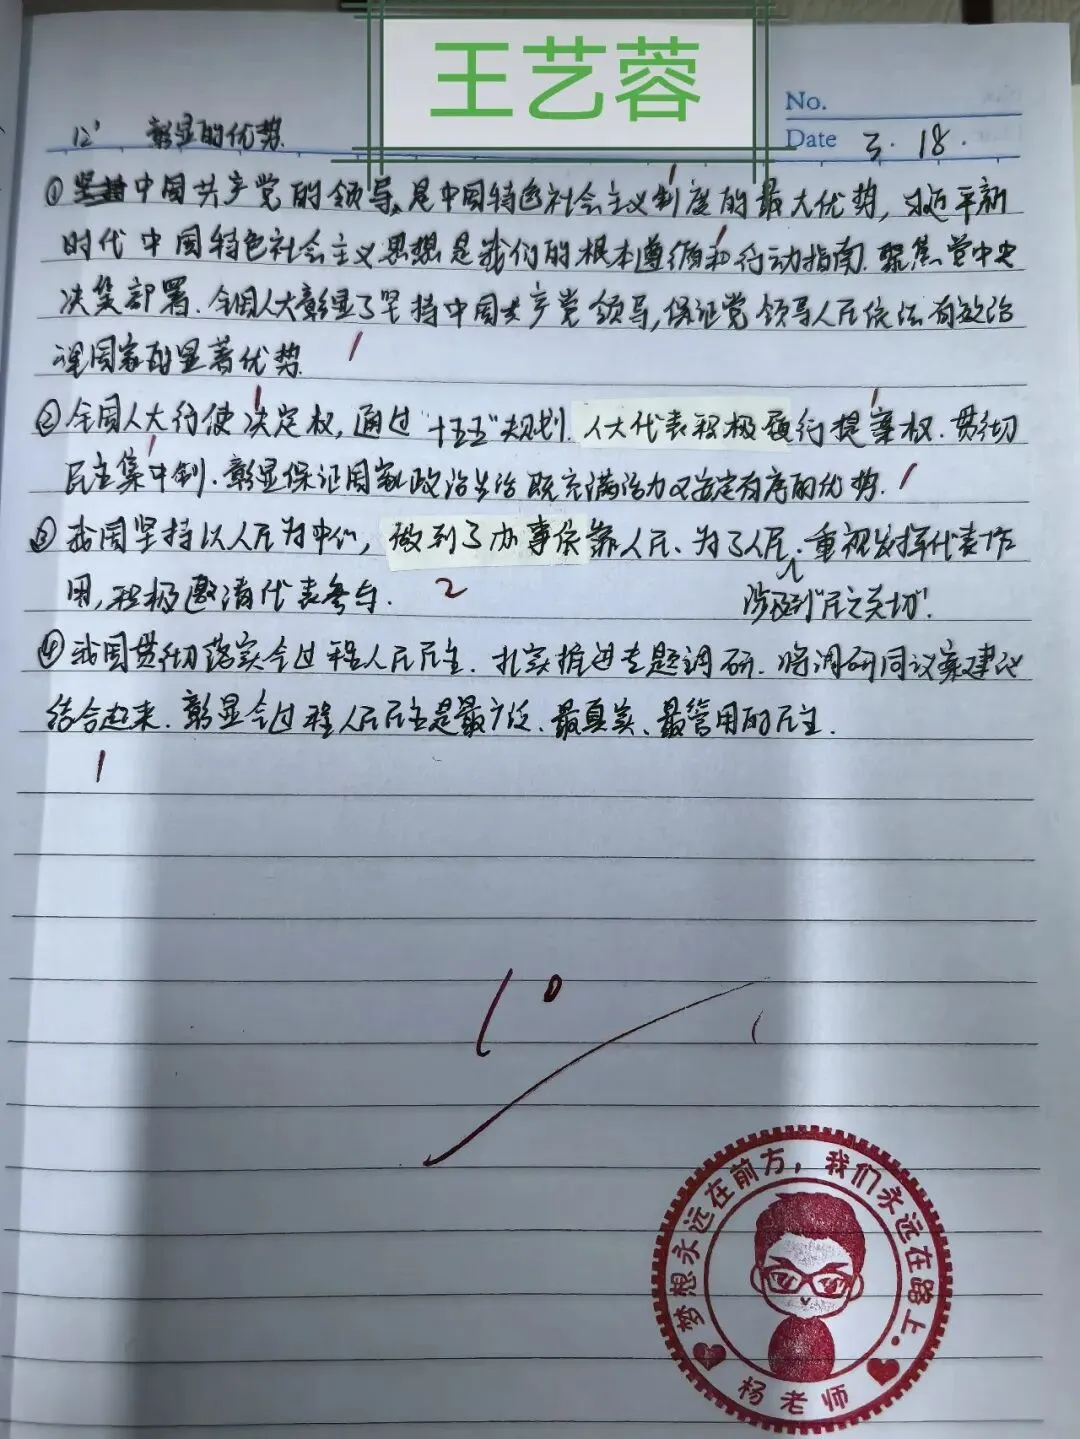 王艺蓉
No.
Date 3.18.
12' 彰显的优势.
①中国共产党的领导,是中国特色社会主义制度的最大优势,习近平新
时代中国特色社会主义思想是我们的根本遵循和行动指南.聚焦党中央
决策部署.全国人大彰显了坚持中国共产党领导,保证党领导人民依法有效治
理国家的显著优势.
②全国人大行使决定权,通过"十五五"规划.人大代表积极履行提案权.贯彻
民主集中制.彰显保证国家政治生活既充满活力又安定有序的优势.
③我国坚持以人民为中心,做到了办事依靠人民、为了人民.重视发挥代表作
用,积极邀请代表参与. 2
涉及到"民之关切".
④我国贯彻落实全过程人民民主.扎实推进专题调研.将调研同议案建议
结合起来.彰显全过程人民民主是最广泛、最真实、最管用的民主.
10
梦想永远在前方,我们永远在路上.
杨老师